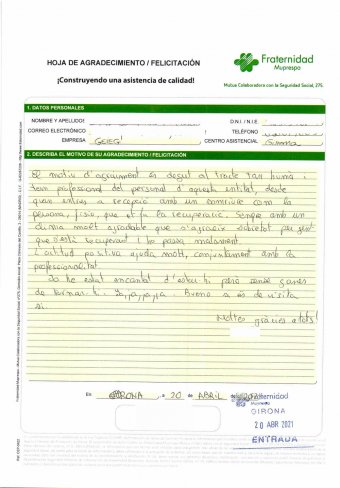 HOJA DE AGRADECIMIENTO / FELICITACIÓN
¡Construyendo una asistencia de calidad!
Fraternidad
Muprespa
Mutua Colaboradora con la Seguridad Social, 275
1. DATOS PERSONALES
NOMBRE Y APELLIDO:
D.N.I / N.I.E
CORREO ELECTRÓNICO
TELÉFONO
EMPRESA
CENTRO ASISTENCIAL Girona
2. DESCRIBA EL MOTIVO DE SU AGRADECIMIENTO / FELICITACIÓN
El motiu d'agraiment és degut al tracte tan humà i
tan professional del personal d'aquesta entitat, desde
quan entres a recepció amb un somriure com la
persona, fisio, que et fa la recuperació. Sempre amb un
clima molt agradable que s'agraeix sobretot per gent
que s'està recuperant i ho passa malament.
L'actitud positiva ajuda molt, conjuntament amb la
professionalitat.
Jo he estat encantat d'estar-hi però sense ganes
de tornar-hi. Ja, ja, ja, ja. Bueno a és de visita
si.
Moltes gràcies a tots!
En GIRONA, a 20 de ABRIL de
Fraternidad
Muprespa
GIRONA
20 ABR 2021
ENTRADA